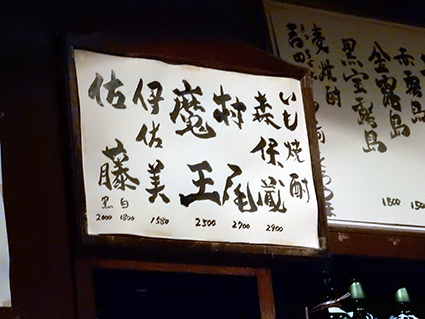 いも焼酎
森保蔵 2900
村尾 2700
魔王 2500
伊佐美 1580
佐藤 白 1800
黒 2000
赤霧島 150
金霧島 1500
黒宝霧島
麦焼酎